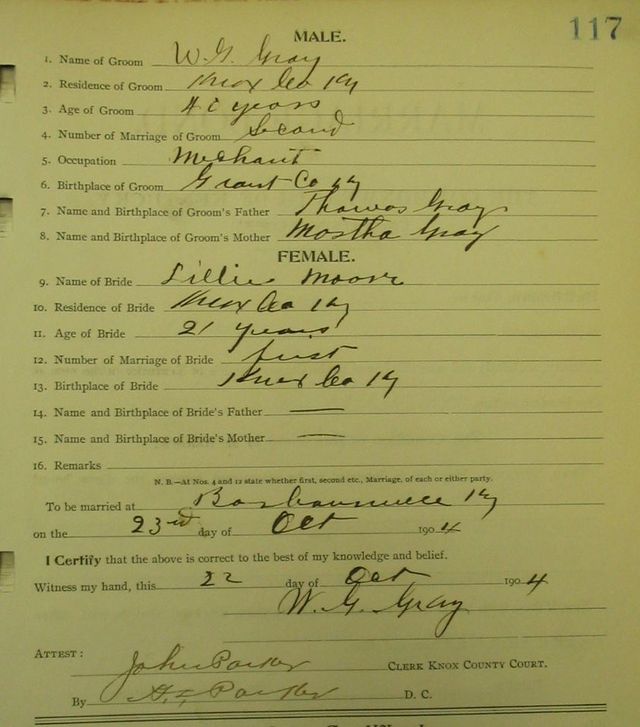 117
MALE.
1. Name of Groom W. G. Gray
2. Residence of Groom Knox Co Ky
3. Age of Groom years
4. Number of Marriage of Groom Second
5. Occupation Mechant
6. Birthplace of Groom Grant Co Ky
7. Name and Birthplace of Groom's Father Thomas Gray
8. Name and Birthplace of Groom's Mother Martha Gray
FEMALE.
9. Name of Bride Lillie Moore
10. Residence of Bride Knox Co Ky
11. Age of Bride 21 years
12. Number of Marriage of Bride first
13. Birthplace of Bride Knox Co Ky
14. Name and Birthplace of Bride's Father —
15. Name and Birthplace of Bride's Mother —
16. Remarks
N. B.—At Nos. 4 and 12 state whether first, second etc., Marriage, of each or either party.
To be married at Barbourville Ky
on the 23rd day of Oct 1904
I Certify that the above is correct to the best of my knowledge and belief.
Witness my hand, this 22 day of Oct 1904
W. G. Gray
ATTEST:
John Parker CLERK KNOX COUNTY COURT.
By Parker D. C.